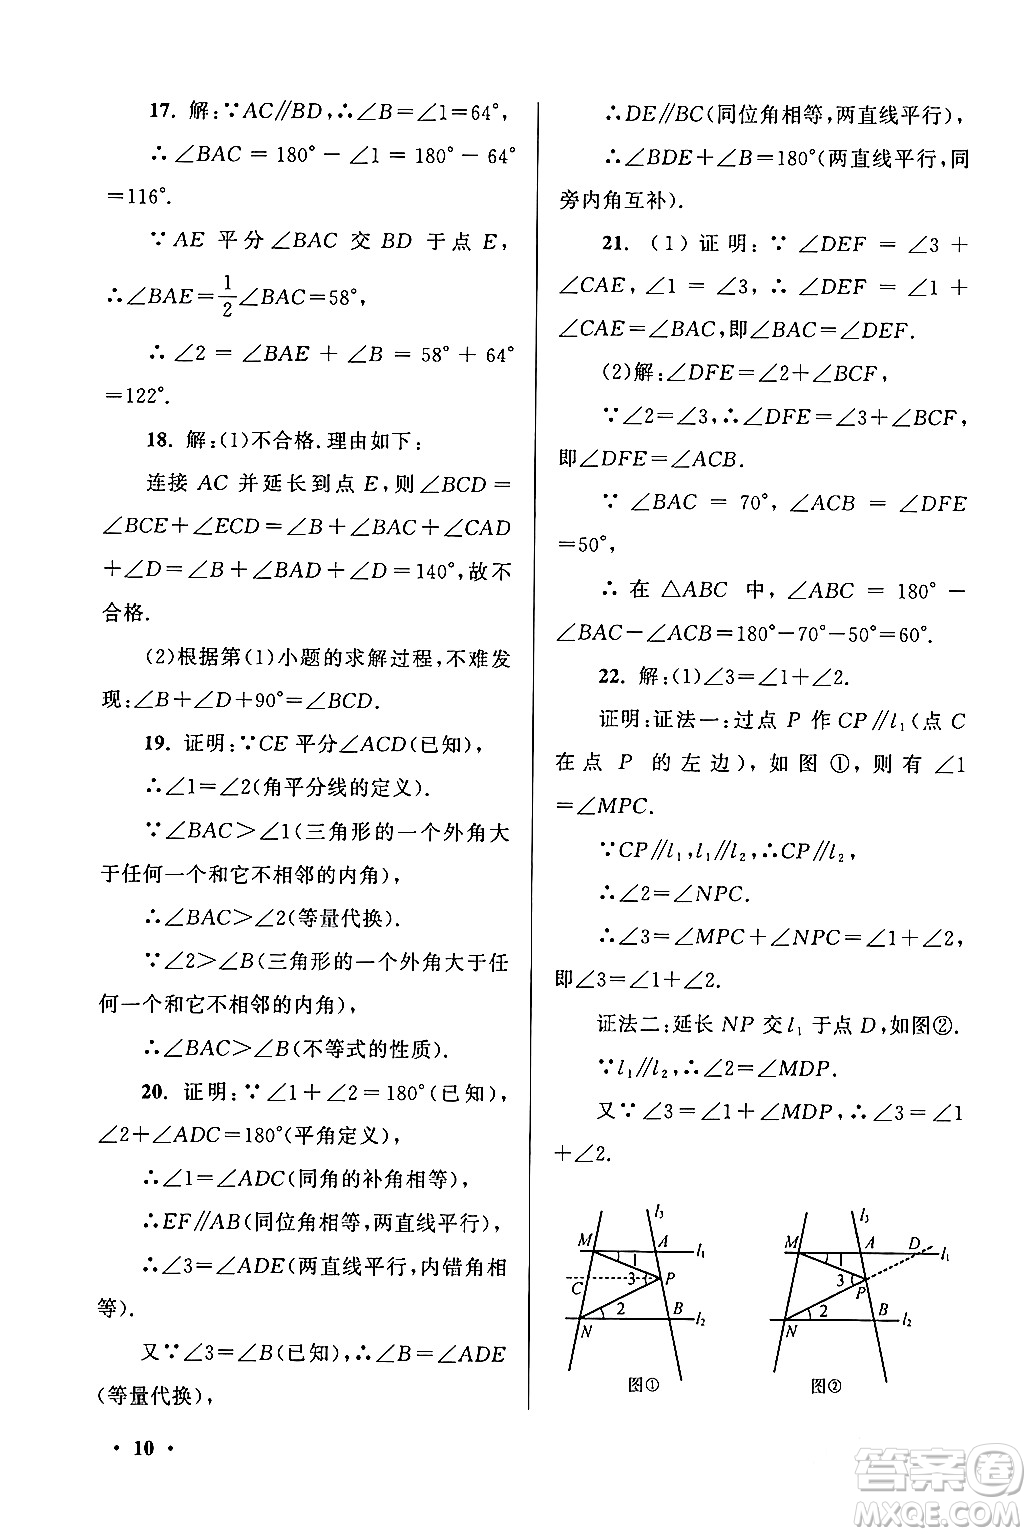 17. 解:∵AC∥BD,∴∠B=∠1=64°,
∴∠BAC = 180° − ∠1 = 180° − 64°
=116°.
∵ AE 平分∠BAC 交 BD 于点 E,
∴∠BAE=1/2∠BAC=58°,
∴∠2 = ∠BAE + ∠B = 58° + 64°
=122°.
18. 解:(1)不合格.理由如下:
连接 AC 并延长到点 E,则∠BCD=
∠BCE+∠ECD=∠B+∠BAC+∠CAD
+∠D=∠B+∠BAD+∠D=140°,故不
合格.
(2)根据第(1)小题的求解过程,不难发
现:∠B+∠D+90°=∠BCD.
19. 证明:∵CE平分∠ACD(已知),
∴∠1=∠2(角平分线的定义).
∵∠BAC>∠1(三角形的一个外角大
于任何一个和它不相邻的内角),
∴∠BAC>∠2(等量代换).
∵∠2>∠B(三角形的一个外角大于任
何一个和它不相邻的内角),
∴∠BAC>∠B(不等式的性质).
20. 证明:∵∠1+∠2=180°(已知),
∠2+∠ADC=180°(平角定义),
∴∠1=∠ADC(同角的补角相等),
∴EF∥AB(同位角相等,两直线平行),
∴∠3=∠ADE(两直线平行,内错角相
等).
又∵∠3=∠B(已知),∴∠B=∠ADE
(等量代换),
· 10 ·
∴DE∥BC(同位角相等,两直线平行),
∴∠BDE+∠B=180°(两直线平行,同
旁内角互补).
21. (1)证明:∵∠DEF = ∠3 +
∠CAE,∠1 = ∠3,∴∠DEF = ∠1 +
∠CAE=∠BAC,即∠BAC=∠DEF.
(2)解:∠DFE=∠2+∠BCF,
∵∠2=∠3,∴∠DFE=∠3+∠BCF,
即∠DFE=∠ACB.
∵ ∠BAC = 70°,∠ACB = ∠DFE
=50°,
∴ 在 △ABC 中,∠ABC = 180° −
∠BAC−∠ACB=180°−70°−50°=60°.
22. 解:(1)∠3=∠1+∠2.
证明:证法一:过点 P 作 CP∥l₁(点 C
在点 P 的左边),如图①,则有∠1
=∠MPC.
∵CP∥l₁,l₁∥l₂,∴CP∥l₂,
∴∠2=∠NPC.
∴∠3=∠MPC+∠NPC=∠1+∠2,
即∠3=∠1+∠2.
证法二:延长 NP 交 l₁ 于点 D,如图②.
∵l₁∥l₂,∴∠2=∠MDP.
又∵∠3=∠1+∠MDP,∴∠3=∠1
+∠2.
l₃
M A 1 l₁
C 3 P
2 B l₂
N
图①
l₃
M A D l₁
1
3 P
2 B l₂
N
图②
答案卷
MXQE.COM